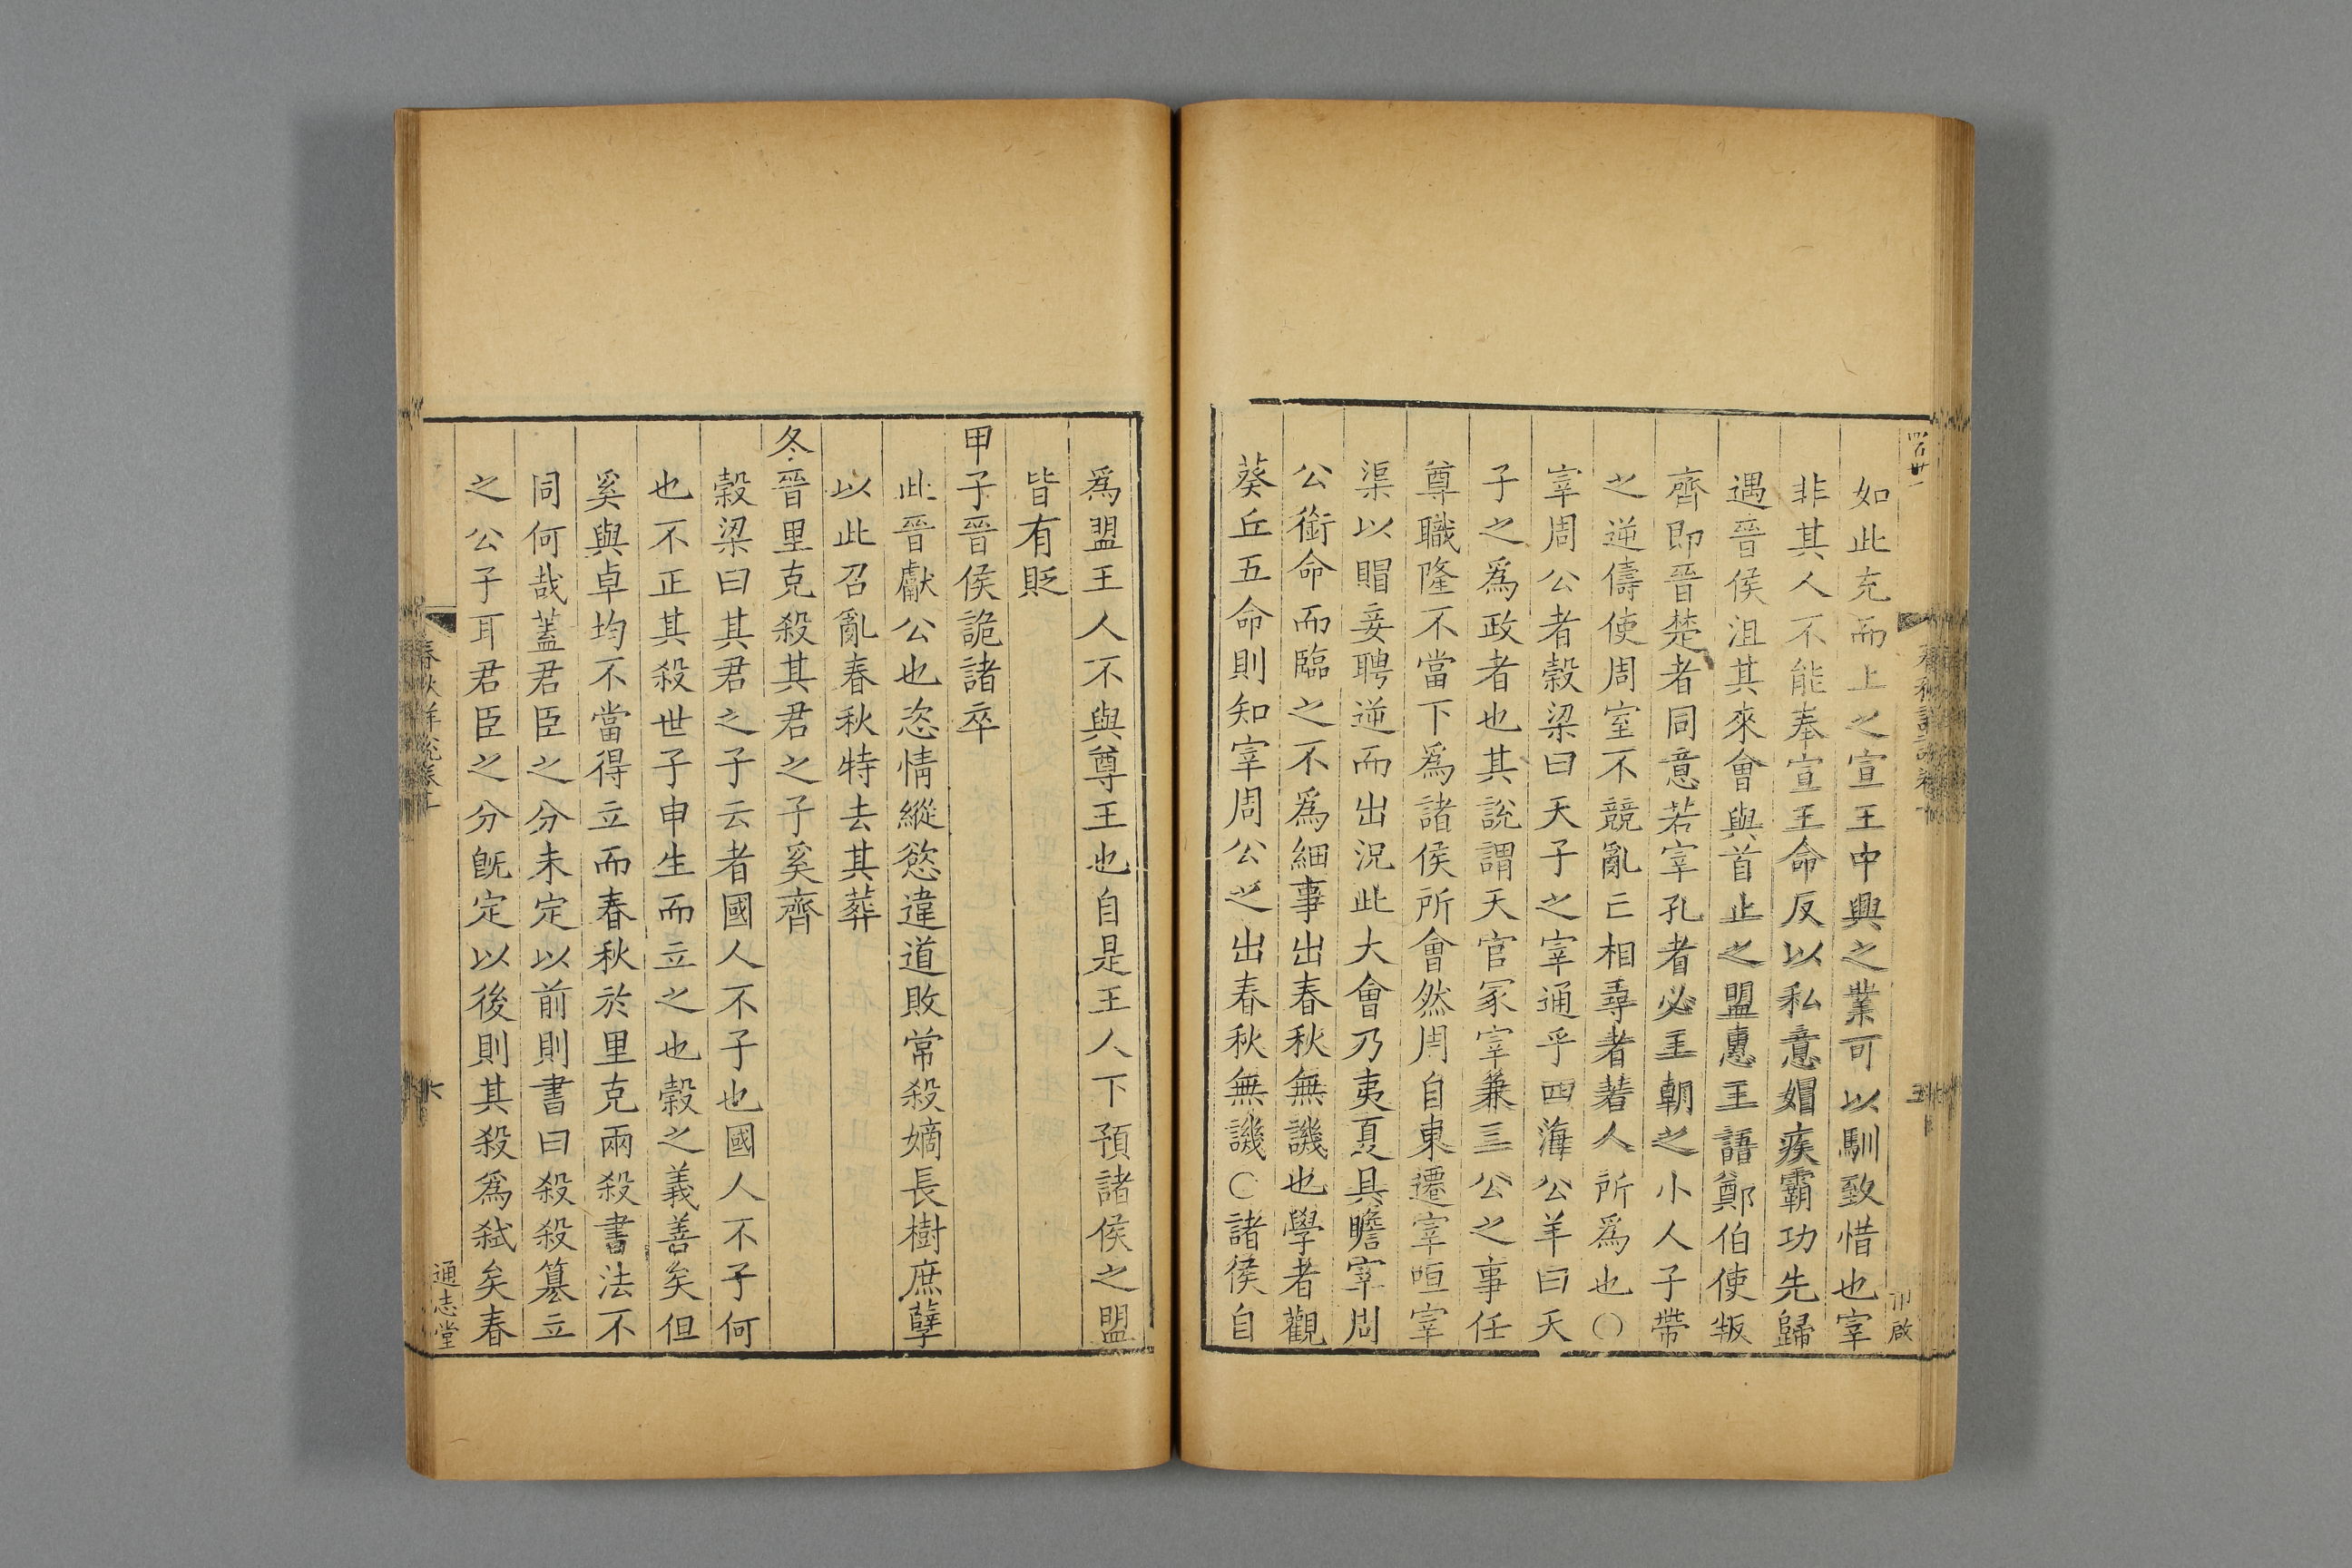 如此充而上之宣王中興之業可以馴致惜也宰
非其人不能奉宣王命反以私意媢疾霸功先歸
遇晉侯沮其來會與首止之盟惠王語鄭伯使叛
齊即晉楚者同意若宰孔者必王朝之小人子帶
之逆儔使周室不競亂亡相尋者著人所爲也○
宰周公者榖梁曰天子之宰通乎四海公羊曰天
子之爲政者也其說謂天官冢宰兼三公之事任
尊職隆不當下爲諸侯所會然周自東遷宰咺宰
渠以賵妾聘逆而出況此大會乃夷夏具瞻宰周
公銜命而臨之不爲細事出春秋無譏也學者觀
葵丘五命則知宰周公之出春秋無譏○諸侯自
爲盟王人不與尊王也自是王人下預諸侯之盟
皆有貶
甲子晉侯詭諸卒
此晉獻公也恣情縱慾違道敗常殺嫡長樹庶孽
以此召亂春秋特去其葬
冬晉里克殺其君之子奚齊
榖梁曰其君之子云者國人不子也國人不子何
也不正其殺世子申生而立之也榖之義善矣但
奚與卓均不當得立而春秋於里克兩殺書法不
同何哉蓋君臣之分未定以前則書曰殺殺篡立
之公子耳君臣之分旣定以後則其殺爲弒矣春
春秋詳說卷十
六
通志堂